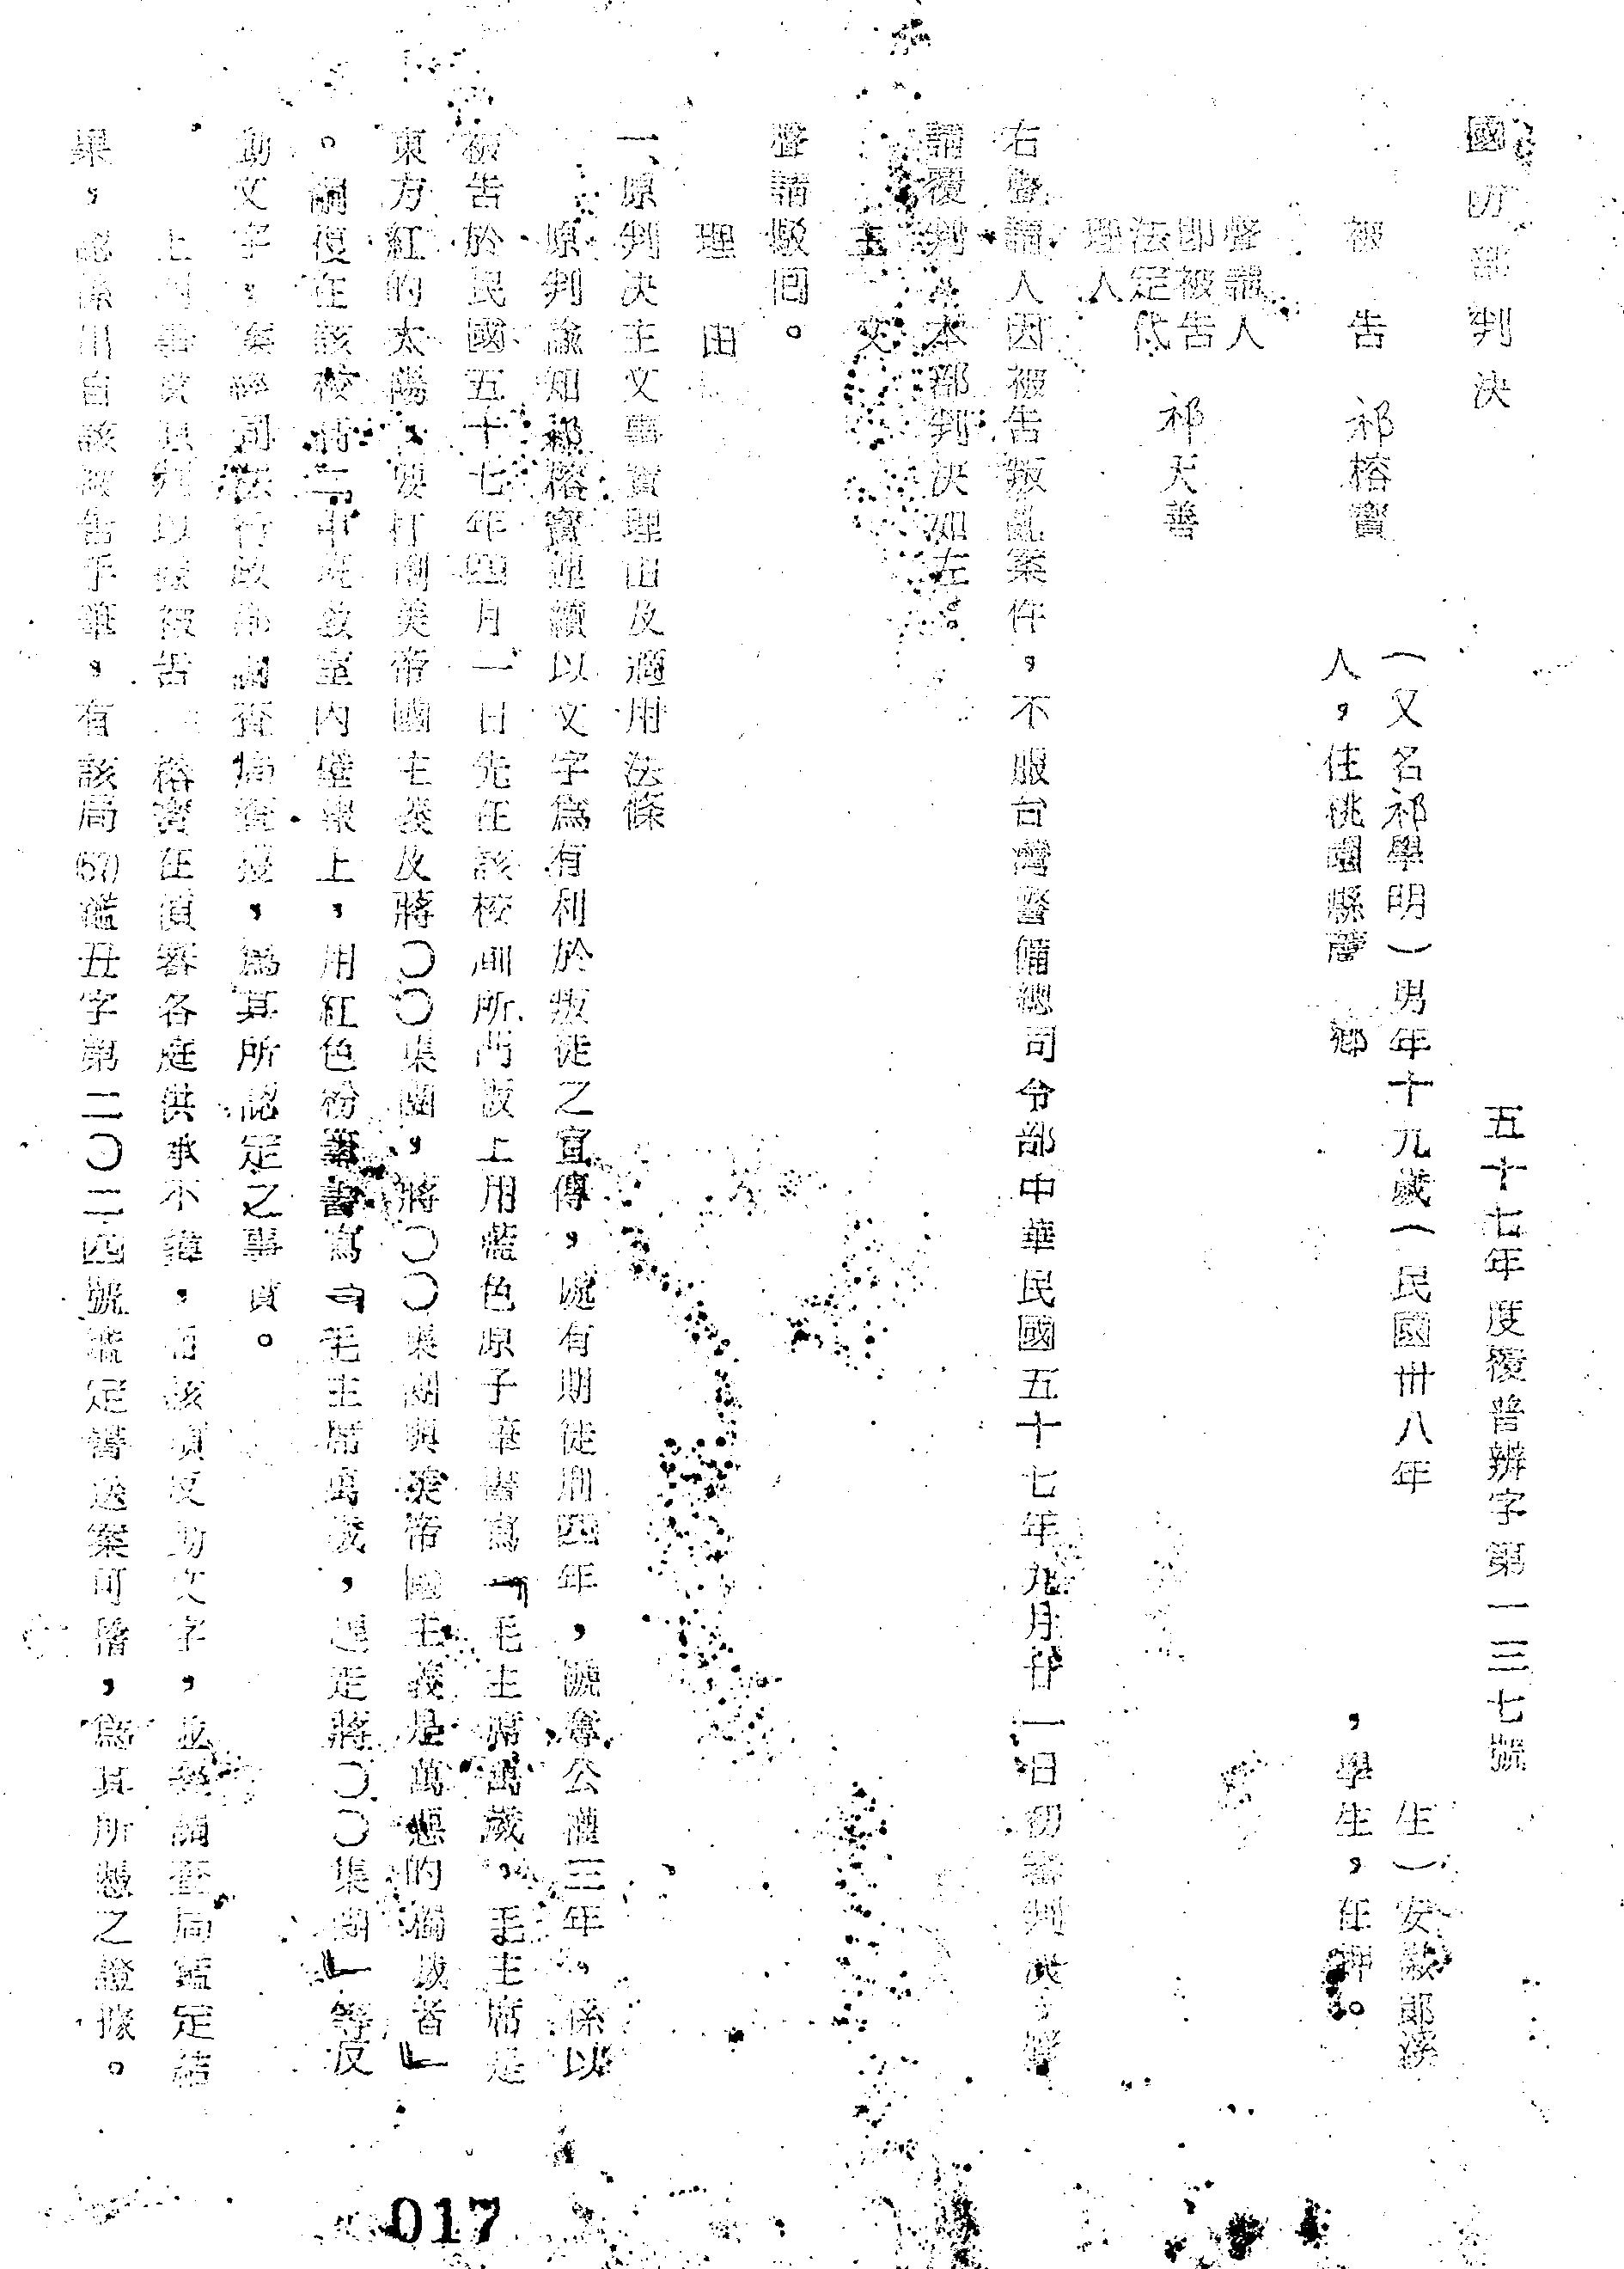 國防部判決
五十七年度覆普辦字第一三七號
被告 祁榕寶 (又名祁學明)男年十九歲(民國卅八年 生)安徽郎溪
人,住桃園縣蘆 鄉 ,學生,在押。
聲請人
即被告
法定代 祁天善
理人
右聲請人因被告叛亂案件,不服台灣警備總司令部中華民國五十七年九月廿一日初審判決,聲
請覆判,本部判決如左。
主文
聲請駁回。
理由
一、原判決主文事實理由及適用法條
原判諭知祁榕寶連續以文字為有利於叛徒之宣傳,處有期徒刑四年,褫奪公權三年。係以
被告於民國五十七年四月一日先在該校廁所門板上用藍色原子筆書寫「毛主席萬歲,毛主席是
東方紅的太陽,要打倒美帝國主義及蔣〇〇集團,蔣〇〇集團與美帝國主義是萬惡的獨裁者」
。嗣復在該校 教室內壁報上,用紅色粉筆書寫「毛主席萬歲,趕走蔣〇〇集團」等反
動文字,案經司法行政部調查局查獲,為其所認定之事實。
上開事實原判以據被告 榕寶在偵審各庭供承不諱,有該項反動文字,並經調查局鑑定結
果,認係出自該被告手筆,有該局(57)鑑丑字第二〇二四號鑑定書送案可稽,為其所憑之證據。
017